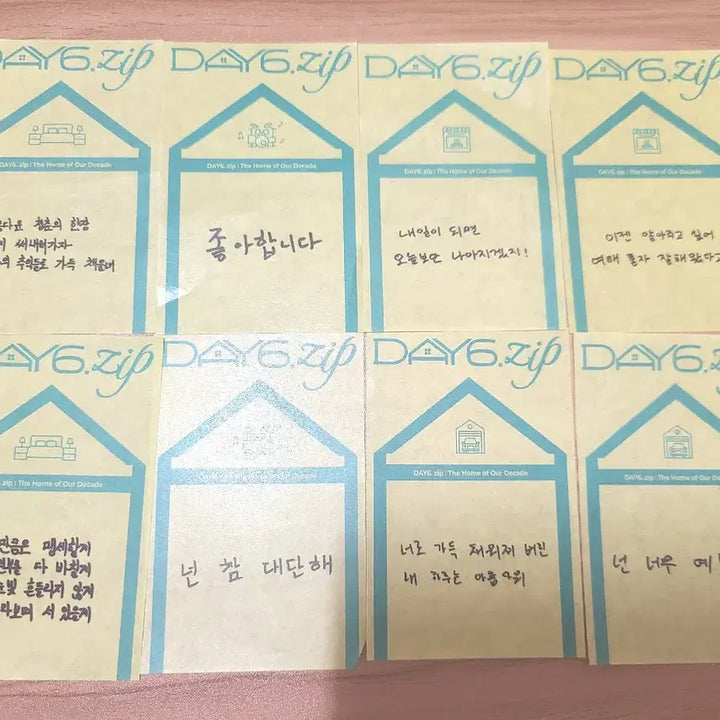 DAY6.zip
DAY6.zip : The Home of Our Decade
청춘의 한장
써내려가자
추억들로 가득 책을
DAY6.zip
DAY6.zip : The Home of Our Decade
좋아합니다
DAY6.zip
DAY6.zip : The Home of Our Decade
내일이 되면
오늘보단 나아지겠지!
DAY6.zip
DAY6.zip : The Home of Our Decade
이젠 알아주고 싶어
여태 혼자 잘해왔다고
DAY6.zip
.zip : The Home of Our Decade
맹세할게
다 바칠게
흔들리지 않게
서 있을게
DAY6.zip
DAY6.zip : The Home of Our Decade
넌 참 대단해
DAY6.zip
DAY6.zip : The Home of Our Decade
너로 가득 채워져 버린
내 하루는 아름다워
DAY6.zip
DAY6.zip : The Home of Our Decade
넌 너무